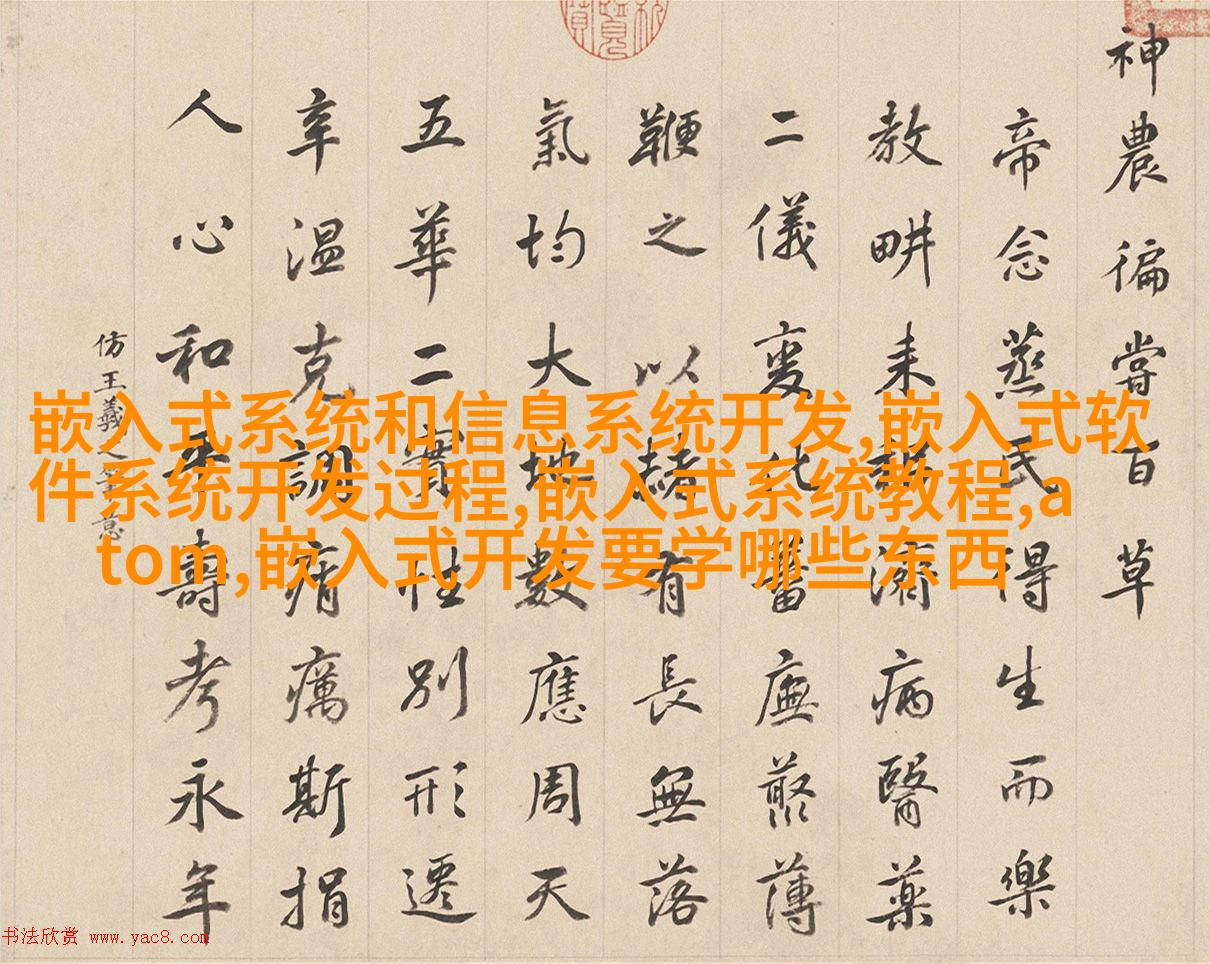 神農徧嘗百草
帝念蒸民得生而樂
教畊耒病醫藥
二儀變化廡藂薄
鞭之以赭有長無落
氣均大地數應周天
五華二實性別形遷
辛温克調癘斯捐
人心和平壽考永年
仿王羲之筆意
嵌入式系统和信息系统开发,嵌入式软
件系统开发过程,嵌入式系统教程,a
tom,嵌入式开发要学哪些东西
书法欣赏 www.yac8.com